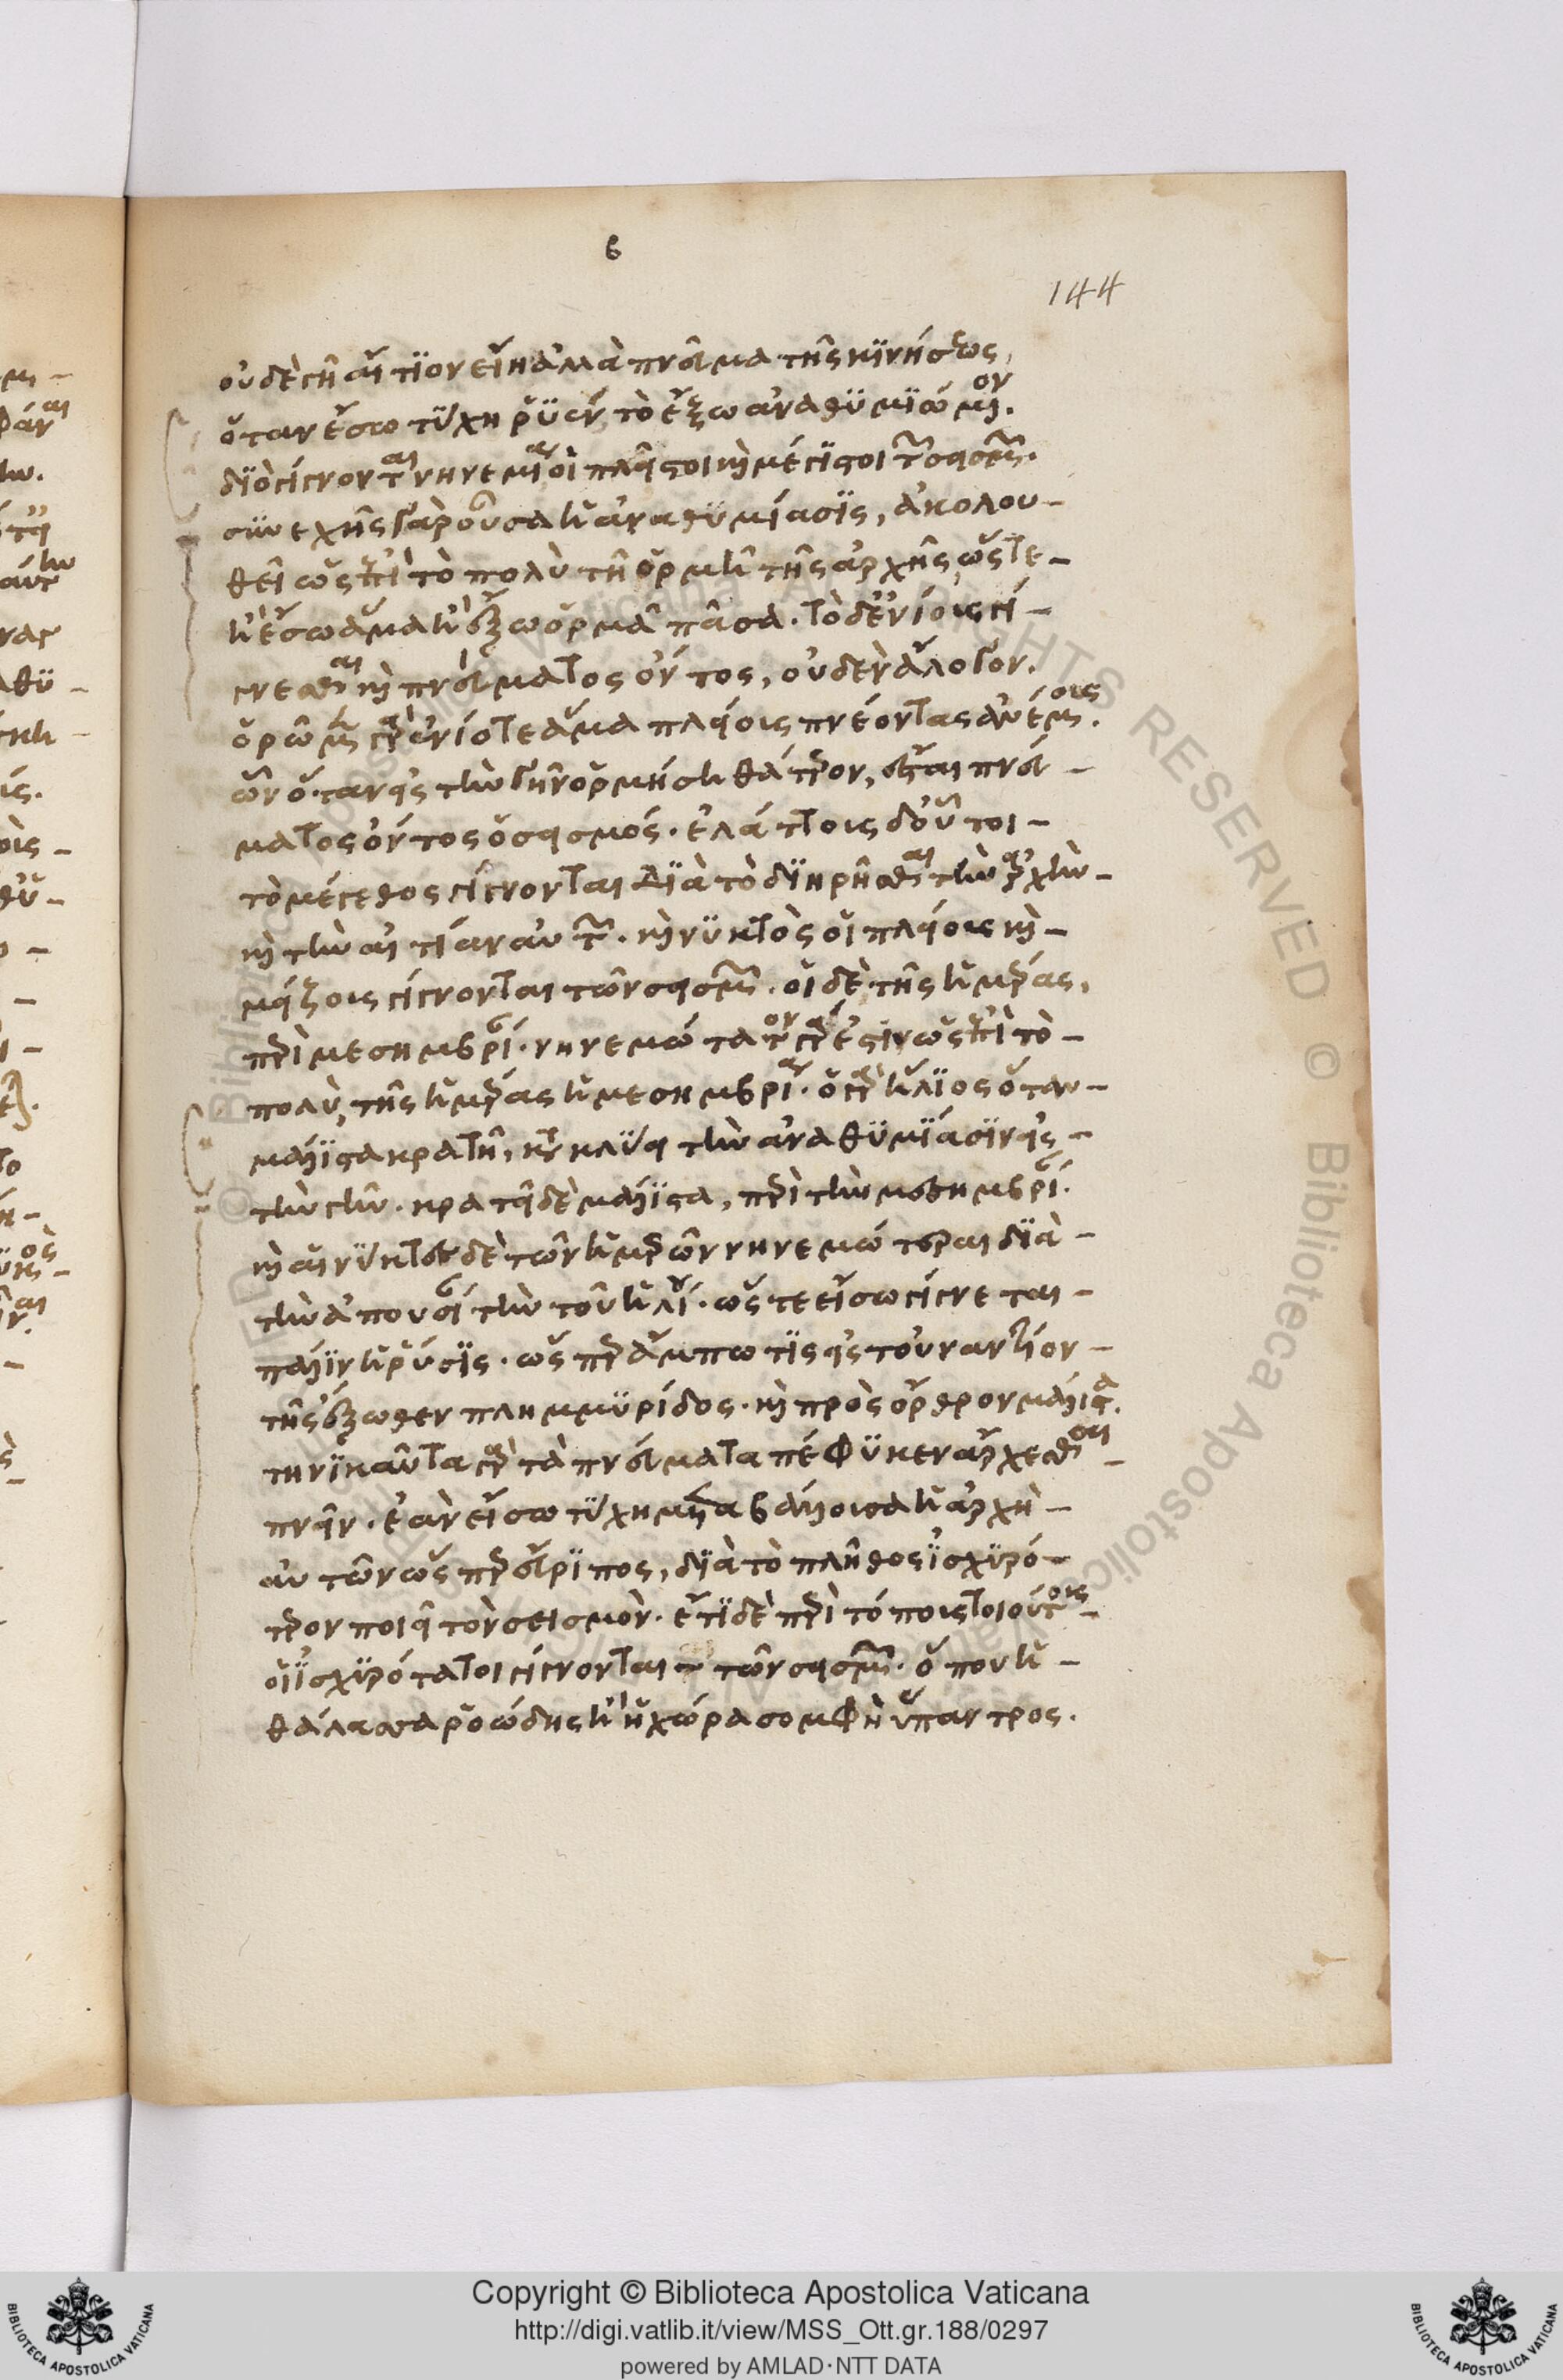 β
144
οὐδὲ γῆ αἴτϊον εἴη ἀλλὰ πνεῦμα τῆς κϊνήσεως,
ὅταν ἔσω τύχη ῥϋὲν, τὸ ἔξω ἀναθϋμϊώμενον.
δϊὸ γίγνονται νηνεμία οἱ πλεῖστοι καὶ μέγϊστοι τῶν σεισμῶν.
συνεχὴς γὰρ οὖσα ἡ ἀναθϋμίασϊς, ἀκολου-
θεῖ ὡς ἐπὶ τὸ πολὺ τῆ ὁρμῆ τῆς ἀρχῆς, ὥστε-
ἢ ἔσω ἅμα ἢ ἔξω ὁρμᾶ πᾶσα. τὸ δ' ἐνίους γί-
γνεσθαι καὶ πνεύματος ὄντος, οὐδὲν ἄλογον.
ὁρῶμεν γὰρ ἐνίοτε ἅμα πλείους πνέοντας ἀνέμοις.
ὧν ὅταν εἰς τὴν γῆν ὁρμήση θάτερον, ἔσται πνεύ-
ματος ὄντος ὁ σεισμός. ἐλάττους δ' οὗτοι-
τὸ μέγεθος γίγνονται διὰ τὸ δϊηρῆσθαι τὴν ἀρχὴν-
καὶ τὴν αἰτίαν αὐτῶν. καὶ νϋκτὸς οἱ πλείους καὶ-
μείζους γίγνονται τῶν σεισμῶν. οἱ δὲ τῆς ἡμέρας,
περὶ μεσημβρίαν. νηνεμώτατον γάρ ἐστιν ὡς ἐπὶ τὸ-
πολὺ, τῆς ἡμέρας ἡ μεσημβρία. ὁ γὰρ ἥλϊος ὅταν-
μάλϊστα κρατῆ, κατακλύει τὴν ἀναθϋμϊάσϊν εἰς-
τὴν γῆν. κρατεῖ δὲ μάλϊστα, περὶ τὴν μεσημβρίαν.
καὶ αἱ νύκτες δὲ τῶν ἡμερῶν νηνεμώτεραι δϊὰ-
τὴν ἀπουσίαν τὴν τοῦ ἡλίου. ὥστε εἴσω γίγνεται-
πάλϊν ἡ ῥύσϊς. ὥσπερ ἄμπωτϊς εἰς τοὐναντίον-
τῆς ἔξωθεν πλημμϋρίδος. καὶ πρὸς ὄρθρον μάλιστα.
τηνϊκαῦτα γὰρ τὰ πνεύματα πέφϋκεν ἄρχεσθαι-
πνεῖν. ἐὰν εἴσω τύχη μεταβάλλουσα ἡ ἀρχὴ-
αὐτῶν ὥσπερ εὔρϊπος, δϊὰ τὸ πλῆθος ἰσχϋρό-
τερον ποιεῖ τὸν σεισμὸν. ἔτϊ δὲ περὶ τόπους τοιούτους-
οἱ ἰσχϋρότατοι γίγνονται τῶν σεισμῶν. ὅπου ἡ-
θάλασσα ῥοώδης ἢ ἡ χώρα σομφὴ ὕπαντρος.